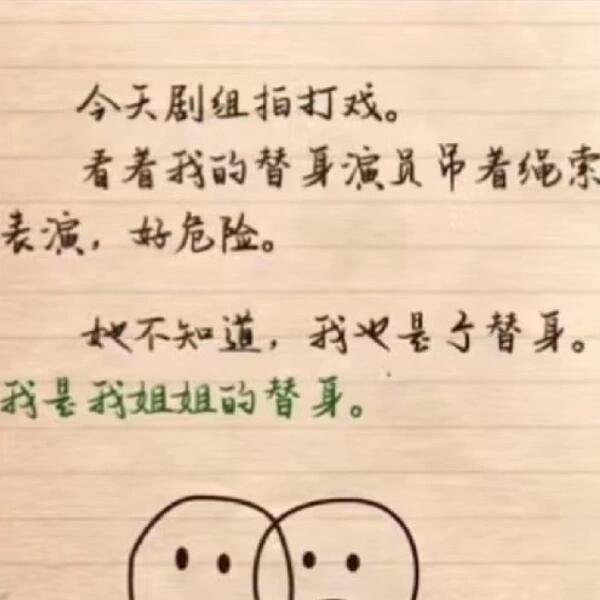 今天剧组拍打戏。
看着我的替身演员吊着绳索
表演，好危险。
她不知道，我也是个替身。
我是我姐姐的替身。